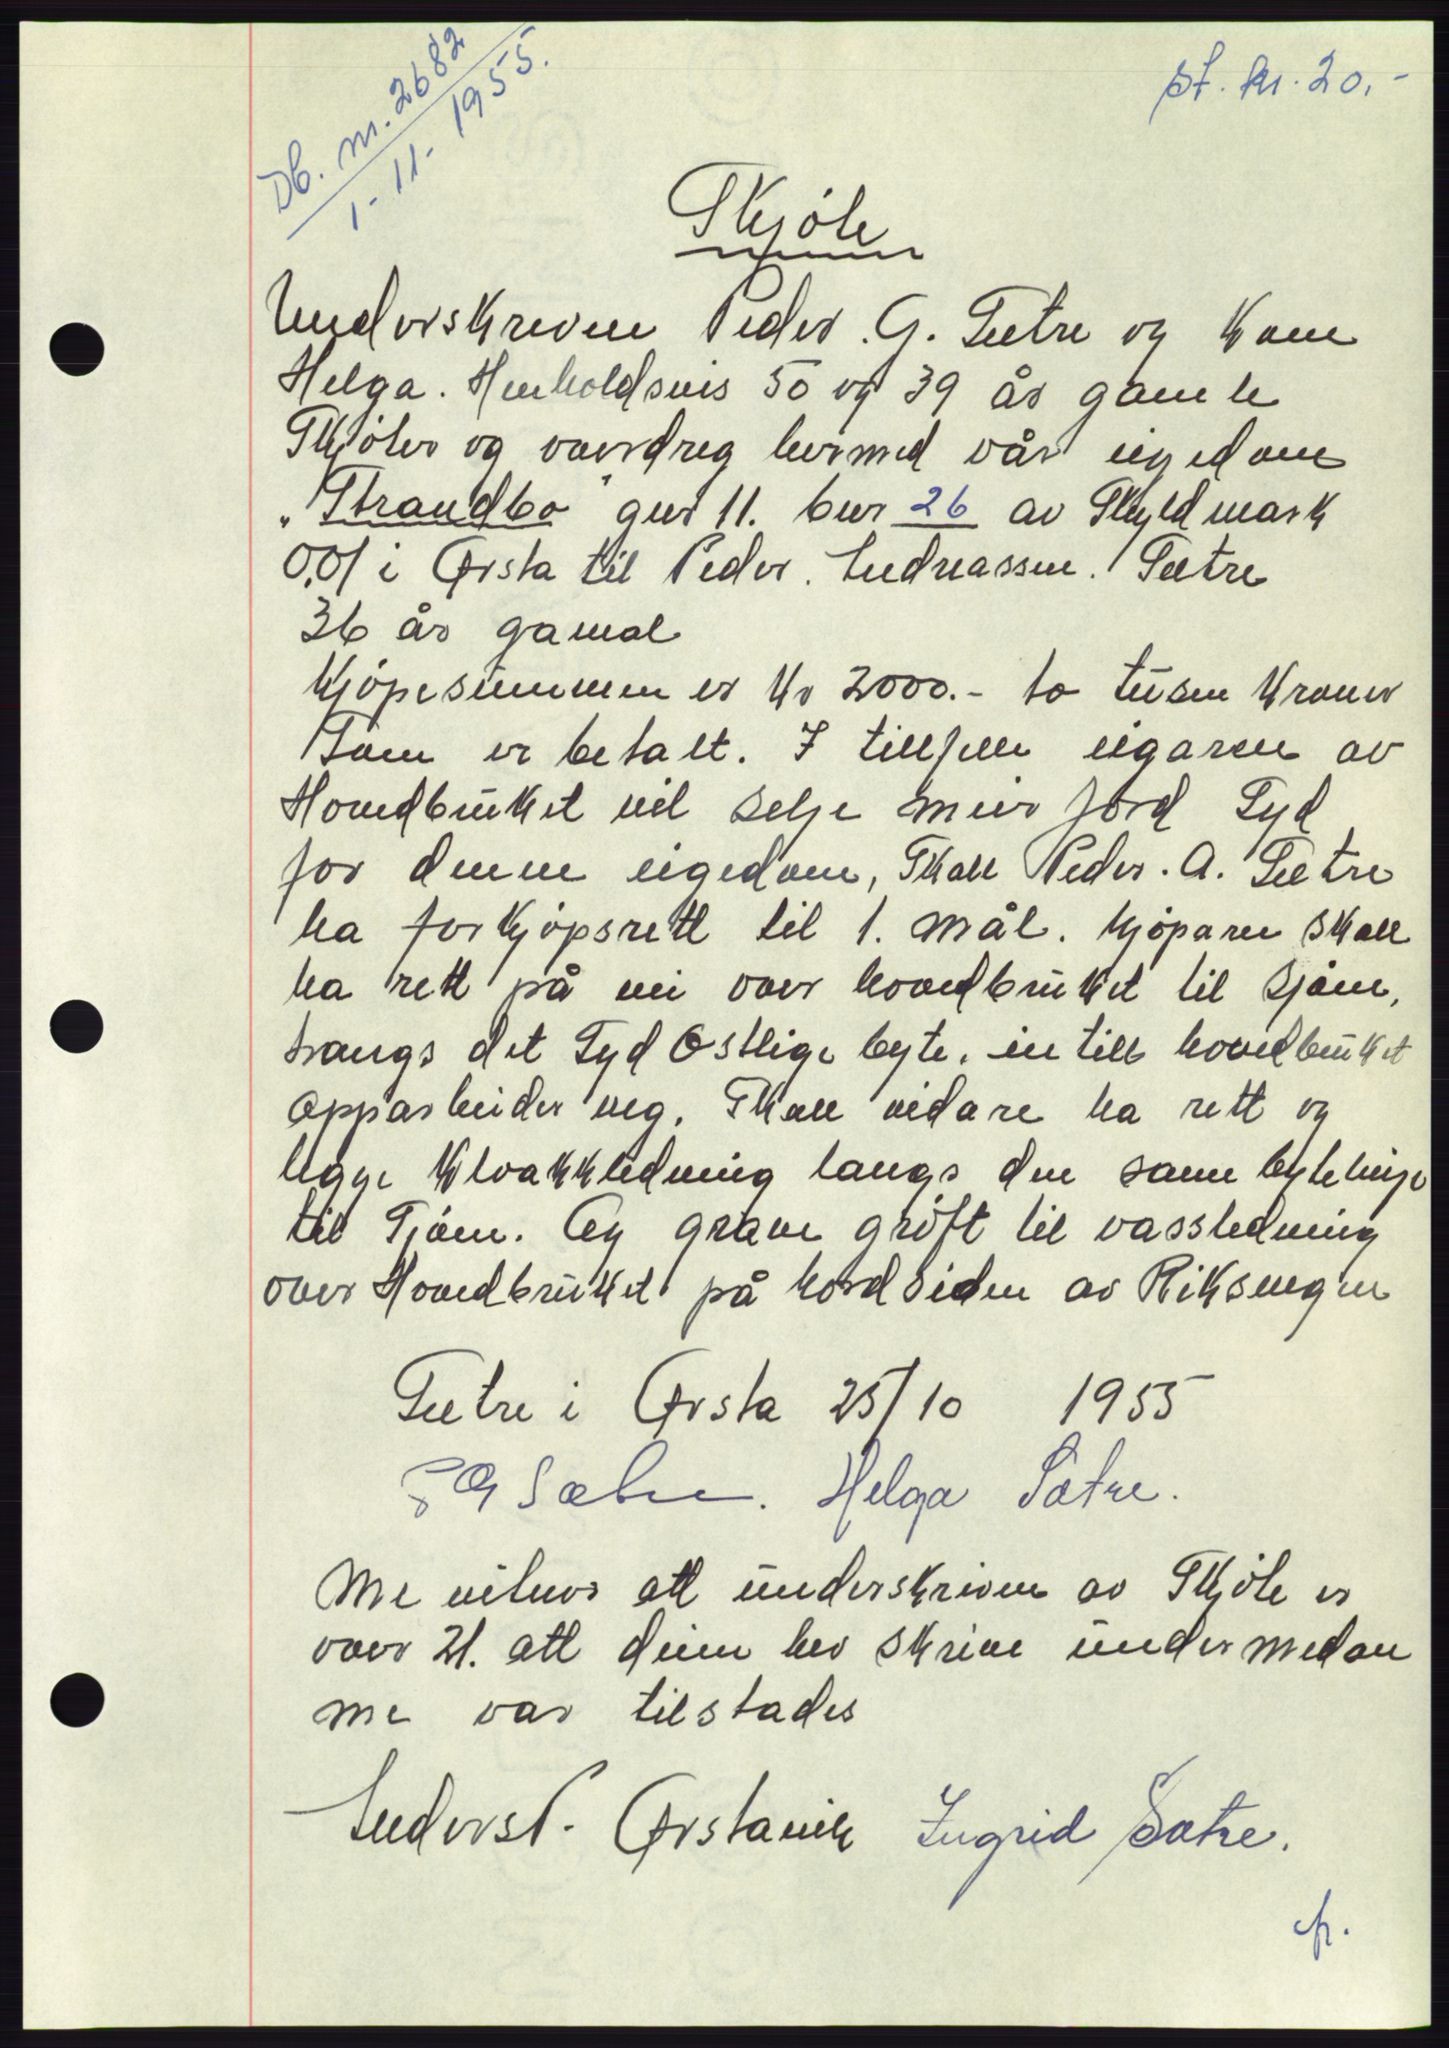 Db. nr. 2682
1-11-1955.
st. kr. 20,-
Skjöte
Underskreven Peder. G. Sætre og kone
Helga. Henholdsvis 50 og 39 år gamle
Skjöter og overdreg hermed vår eigedom
„Strandbo" gnr 11. bnr 26 av Skyldmark
0,01 i Ørsta til Peder. Andreassen. Sætre
36 år gamal
Kjöpesummen er Kr 2000.- to tusen Kroner
Som er betalt. I tillfelle eigaren av
Hovedbruket vil selje meir jord Syd
for denne eigedom, Skall Peder. A. Sætre
ha forkjöpsrett til 1. mål. Kjöparen skall
ha rett på vei over hovedbruket til sjöen,
langs det Syd Östlige byte. in till hovedbruket
opparbeider veg. Skall vidare ha rett og
legge Kloakkledning langs den same bytelinje
til Sjöen. Og grave gröft til vassledning
over Hovedbruket på Nordsiden av Riksvegen
Sætre i Ørsta 25/10 1955
P G Sætre. Helga Sætre.
Me vitner att underskriven av Skjöte er
over 21. att deim hev skrive under medan
me var tilstades
Anders P. Ørstavik Ingrid Sætre.